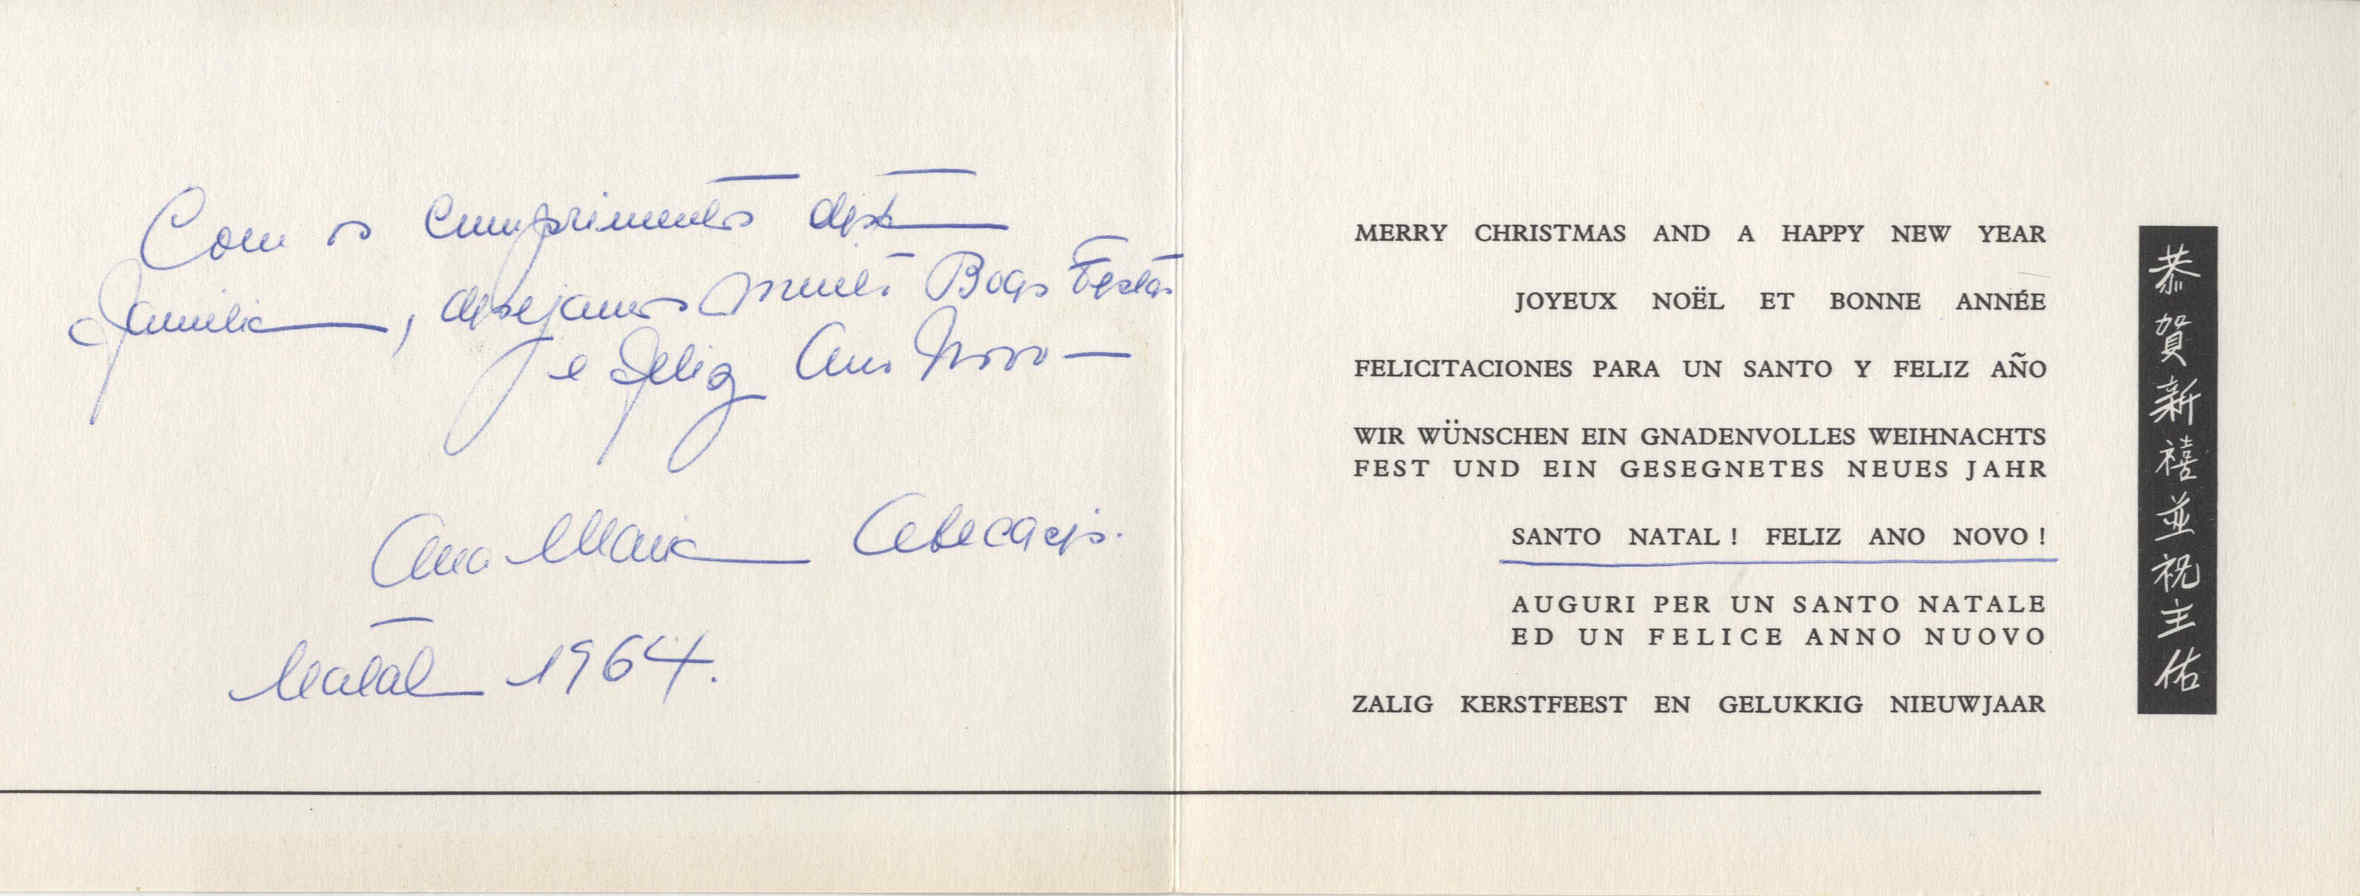 Com os cumprimentos desta
familia, desejamos muito Boas Festas
e feliz Ano Novo
Ana Maria
Natal 1964.
MERRY CHRISTMAS AND A HAPPY NEW YEAR
JOYEUX NOËL ET BONNE ANNÉE
FELICITACIONES PARA UN SANTO Y FELIZ AÑO
WIR WÜNSCHEN EIN GNADENVOLLES WEIHNACHTS
FEST UND EIN GESEGNETES NEUES JAHR
SANTO NATAL! FELIZ ANO NOVO!
AUGURI PER UN SANTO NATALE
ED UN FELICE ANNO NUOVO
ZALIG KERSTFEEST EN GELUKKIG NIEUWJAAR
恭賀新禧並祝主佑